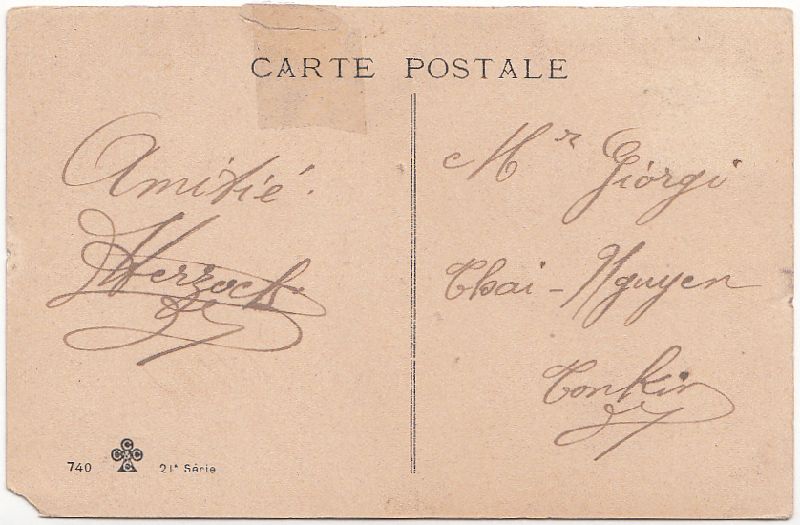 CARTE POSTALE
Amitié.
Herzock
Mr Giorgi
Thai-Nguyen
Tonkin
740 CCCC 21e Série